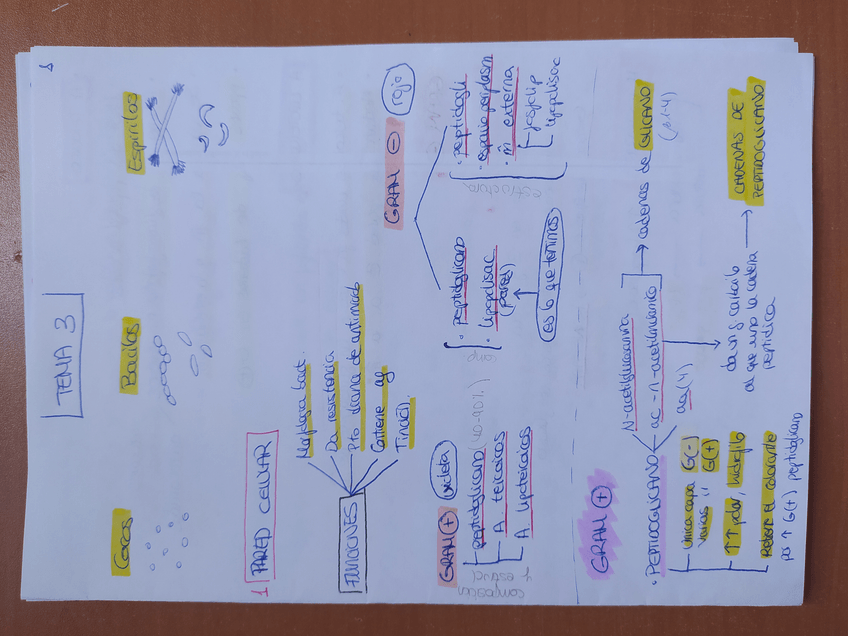 1
TEMA 3
Cocos
Bacilos
Espirilos
1 PARED CELULAR
FUNCIONES
Morfología bact.
Da resistencia
Pto diana de antimicrob
Contiene ag
Tinción.
GRAM (+) violeta
composición y estruct
peptidoglicano (40-90%)
A. teicoicos
A. lipoteicoicos
GRAM ⊖ rojo
comp.
· peptidoglicano
· lipopolisac.
(pared)
es lo que teñimos
estructura
· peptidogli
· espacio periplasm
· m̂ externa
fosfolip
lipopolisac
GRAM ⊕
· PEPTIDOGLICANO
N-acetilglucosamina
ac-n-acetilmurámico
→ cadenas de GLICANO
(β 1-4)
aa (4)
al que uno la cadena
peptídica
→ CADENAS DE
PEPTIDOGLICANO
Única capa G(-)
Varias " G(+)
↑↑ polar, hidrófilo
Retiene el colorante
por ↑ G(+) peptidoglicano